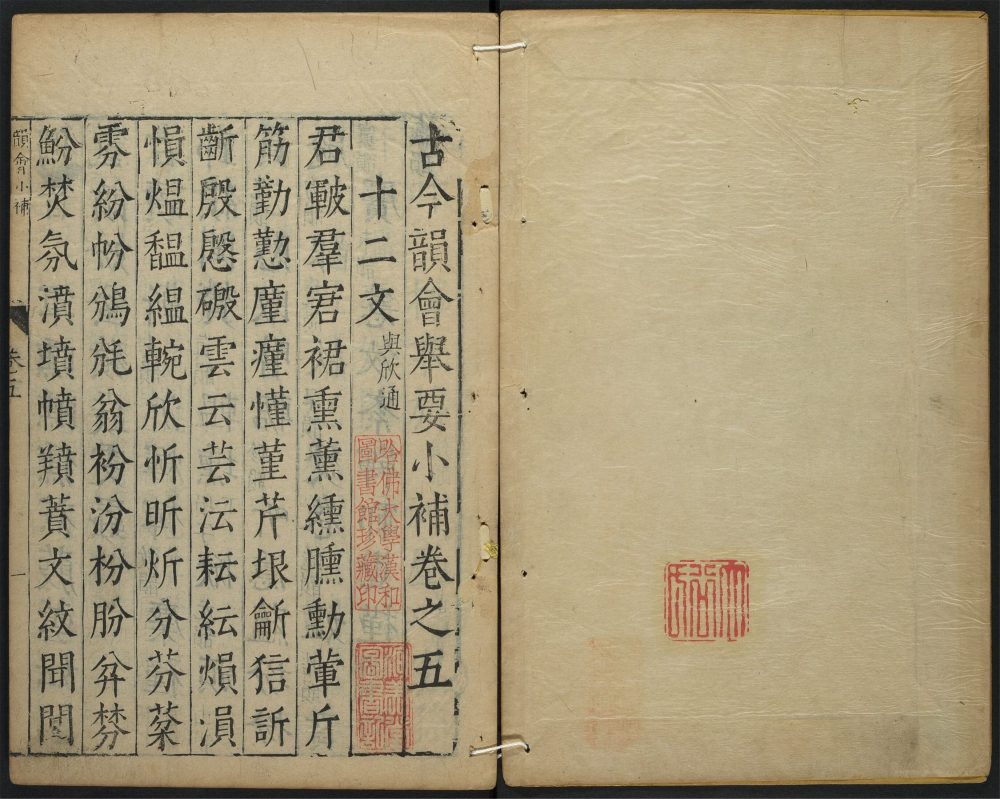 古今韻會舉要小補卷之五
十二文 與欣通
哈佛大學漢和
圖書館珍藏印
君皸羣宭裙熏薰纁臐勳葷斤
筋勤懃廑瘽慬堇芹垠齗狺訢
齭殷慇磤雲云芸沄耘紜熉溳
愪熅馧縕轀欣忻昕炘分芬棻
雰紛帉鳻㲯翁衯汾枌肦弅棼
魵焚氛濆墳幩羵蕡文紋聞閺
韻會小補
卷五
一